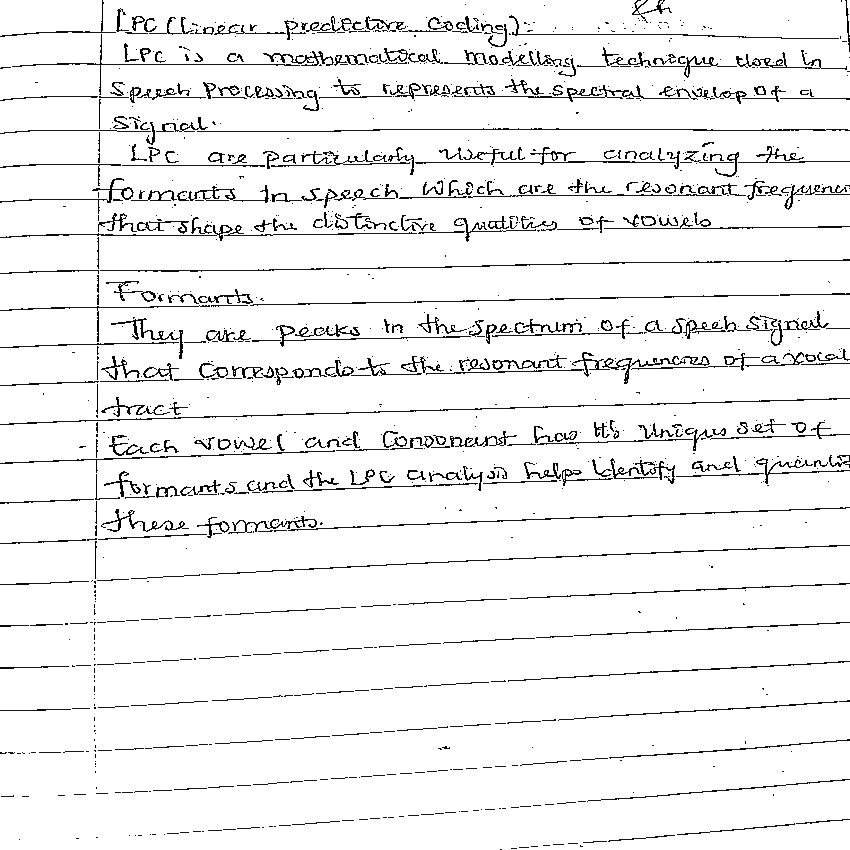 LPC (Linear predective coding):-
LPC is a mathematical modelling technique used in
Speech Processing to represents the spectral envelop of a
Signal.
LPC are particularly useful for analyzing the
formants in speech which are the resonant frequenc
that shape the distinctive qualities of vowels
Formants.
They are peaks in the spectrum of a speech signal
that corresponds to the resonant frequencies of a vocal
tract
- Each vowel and consonant has it's unique set of
formants and the LPC analysis helps identify and quanti
these formants.